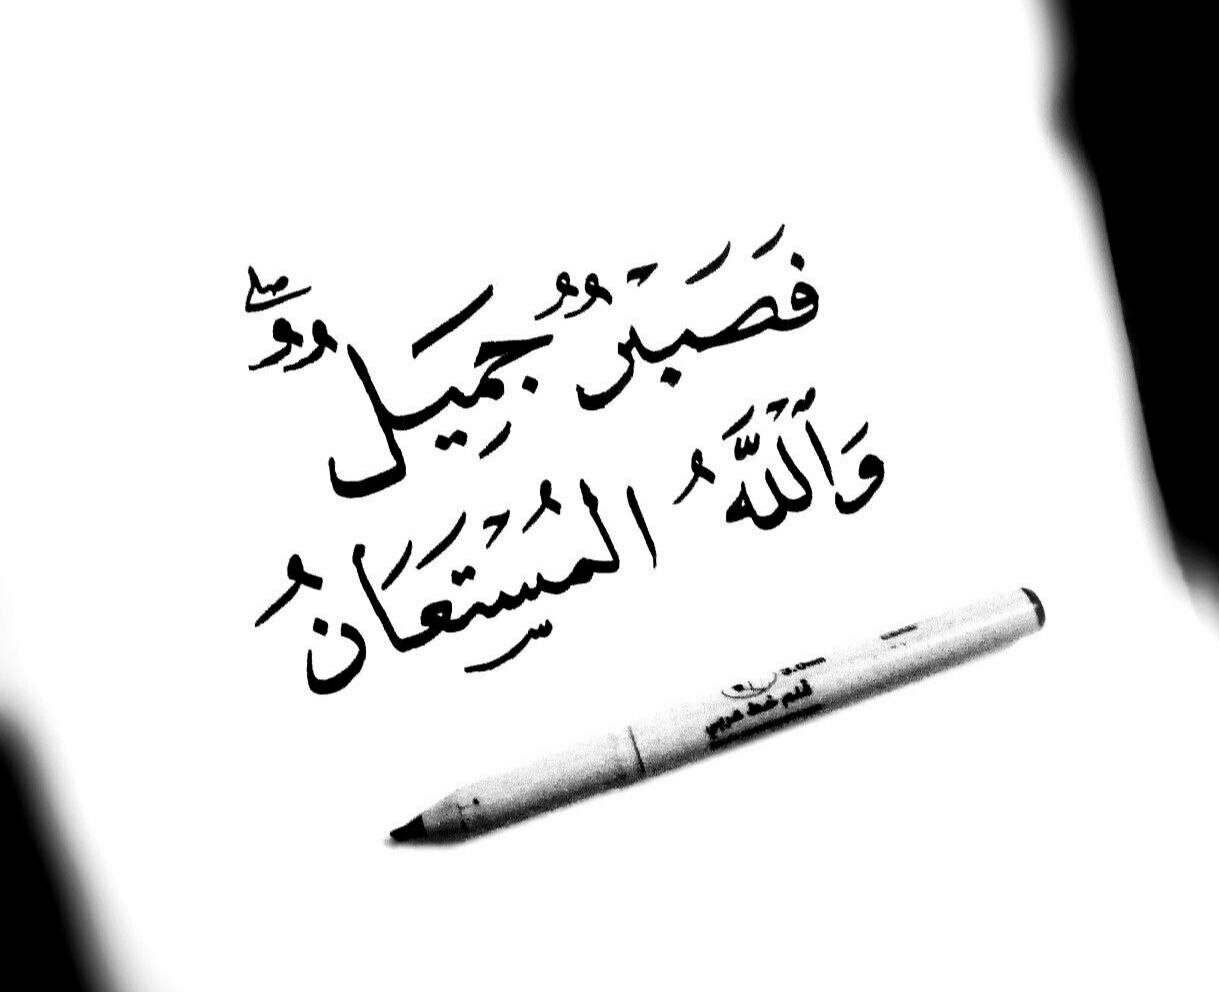 فَصَبْرٌ جَمِيلٌ ۖ
وَٱللَّهُ المُسْتَعَانُ
قلم خط عربي